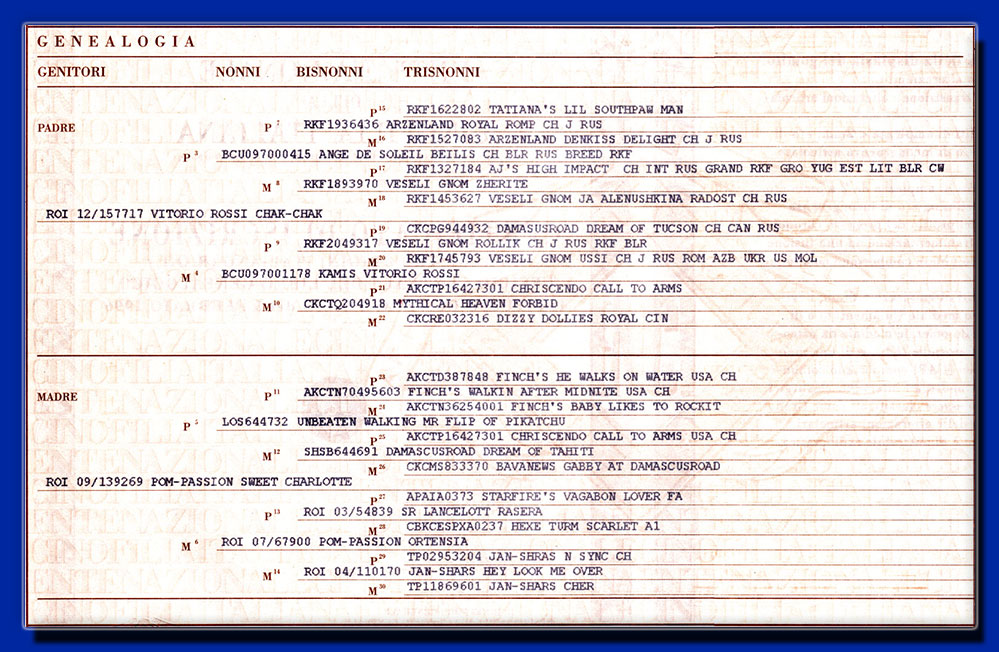 GENEALOGIA
GENITORI NONNI BISNONNI TRISNONNI
P 15 RKF1622802 TATIANA'S LIL SOUTHPAW MAN
PADRE P 7 RKF1936436 ARZENLAND ROYAL ROMP CH J RUS
M 16 RKF1527083 ARZENLAND DENKISS DELIGHT CH J RUS
P 3 BCU097000415 ANGE DE SOLEIL BEILIS CH BLR RUS BREED RKF
P 17 RKF1327184 AJ'S HIGH IMPACT CH INT RUS GRAND RKF GRO YUG EST LIT BLR CW
M 8 RKF1893970 VESELI GNOM ZHERITE
M 18 RKF1453627 VESELI GNOM JA ALENUSHKINA RADOST CH RUS
ROI 12/157717 VITORIO ROSSI CHAK-CHAK
P 19 CKCPG944932 DAMASUSROAD DREAM OF TUCSON CH CAN RUS
P 9 RKF2049317 VESELI GNOM ROLLIK CH J RUS RKF BLR
M 20 RKF1745793 VESELI GNOM USSI CH J RUS ROM AZB UKR US MOL
M 4 BCU097001178 KAMIS VITORIO ROSSI
P 21 AKCTP16427301 CHRISCENDO CALL TO ARMS
M 10 CKCTQ204918 MYTHICAL HEAVEN FORBID
M 22 CKCRE032316 DIZZY DOLLIES ROYAL CIN
P 23 AKCTD387848 FINCH'S HE WALKS ON WATER USA CH
MADRE P 11 AKCTN70495603 FINCH'S WALKIN AFTER MIDNITE USA CH
M 24 AKCTN36254001 FINCH'S BABY LIKES TO ROCKIT
P 5 LOS644732 UNBEATEN WALKING MR FLIP OF PIKATCHU
P 25 AKCTP16427301 CHRISCENDO CALL TO ARMS USA CH
M 12 SHSB644691 DAMASCUSROAD DREAM OF TAHITI
M 26 CKCMS833370 BAVANEWS GABBY AT DAMASCUSROAD
ROI 09/139269 POM-PASSION SWEET CHARLOTTE
P 27 APAIA0373 STARFIRE'S VAGABON LOVER FA
P 13 ROI 03/54839 SR LANCELOTT RASERA
M 28 CBKCESPXA0237 HEXE TURM SCARLET A1
M 6 ROI 07/67900 POM-PASSION ORTENSIA
P 29 TP02953204 JAN-SHRAS N SYNC CH
M 14 ROI 04/110170 JAN-SHARS HEY LOOK ME OVER
M 30 TP11869601 JAN-SHARS CHER